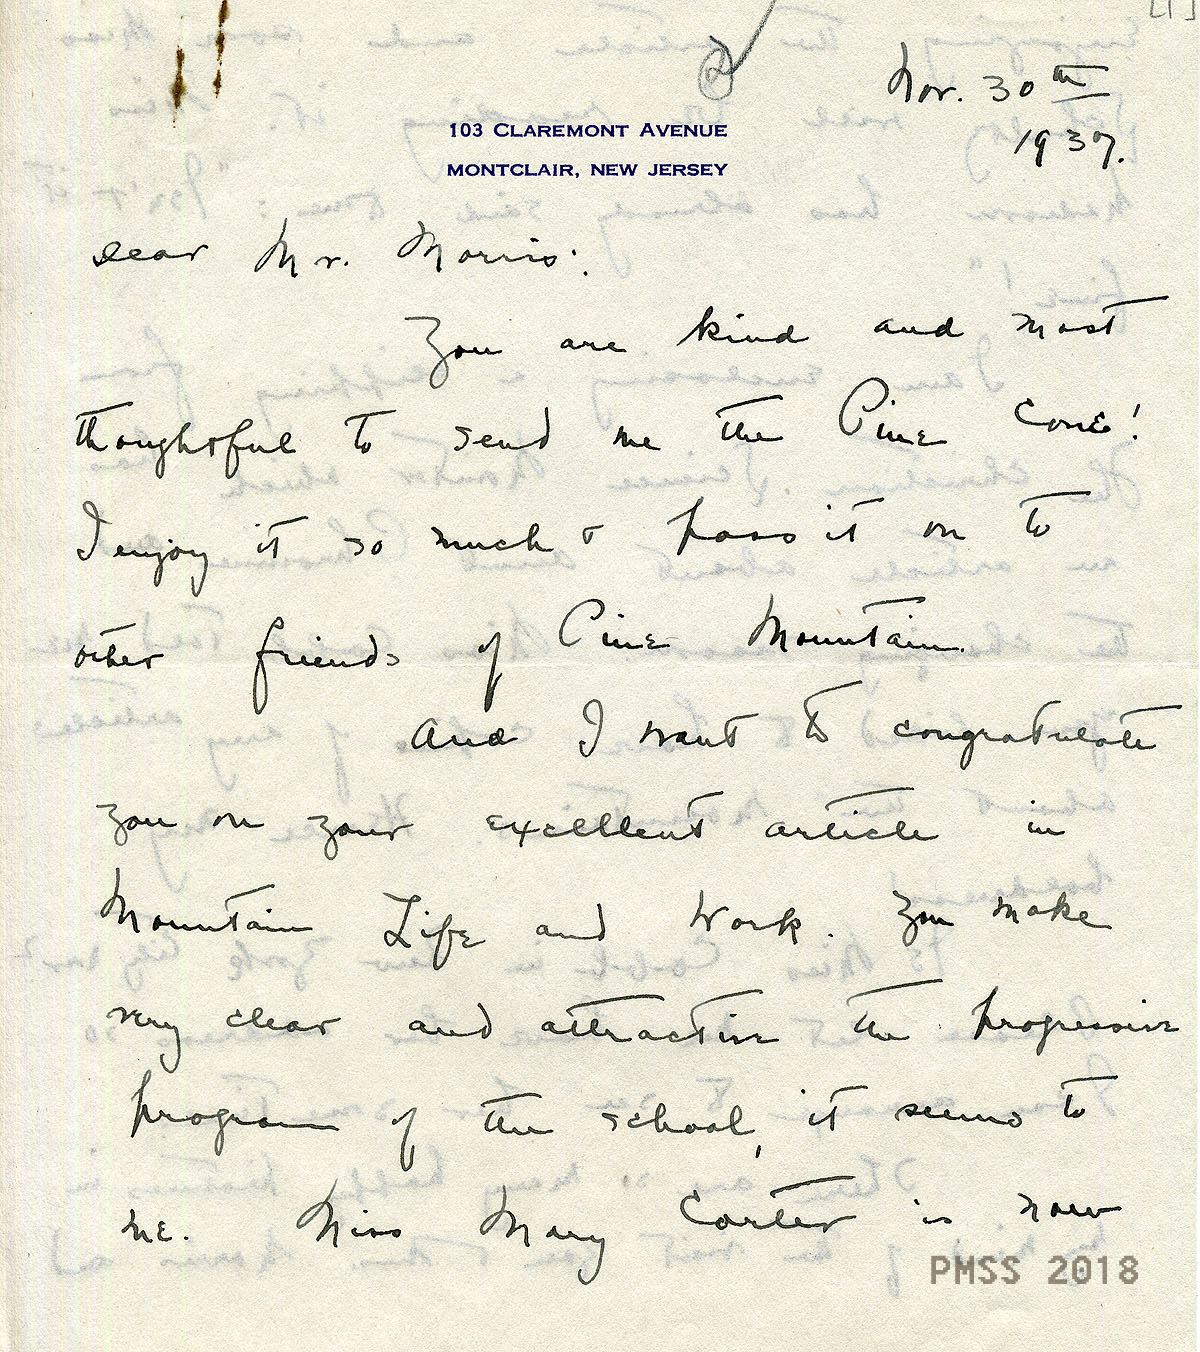 [1]
Nov. 30th
1937.
103 CLAREMONT AVENUE
MONTCLAIR, NEW JERSEY
Dear Mr. Morris:
You are kind and most
thoughtful to send me the Pine Cone!
I enjoy it so much & pass it on to
other friends of Pine Mountain.
And I want to congratulate
you on your excellent article in
Mountain Life and Work. You make
very clear and attractive the progressive
program of the school, it seems to
me. Miss Mary Carter is now
PMSS 2018